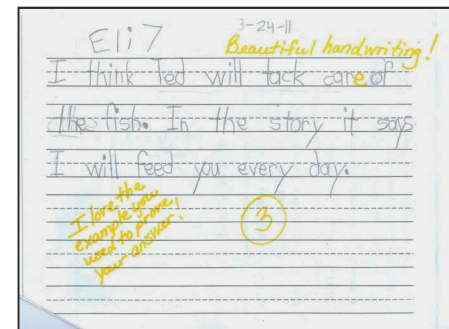 Eli 7
3-24-11
Beautiful handwriting!
I think Ted will tack care of
the fish. In the story it says
I will feed you every day.
I love the
example you
used to prove
your answer!
3